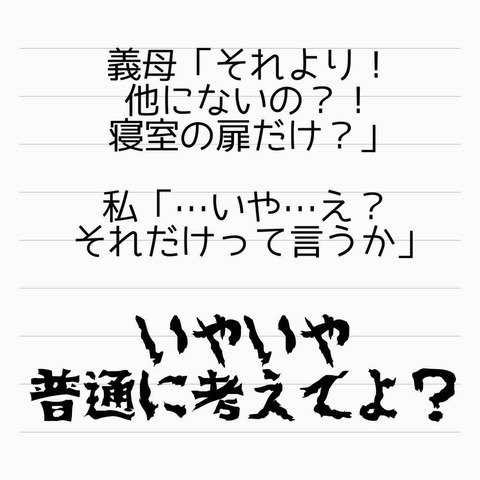 義母「それより！
他にないの？！
寝室の扉だけ？」
私「…いや…え？
それだけって言うか」
いやいや
普通に考えてよ？